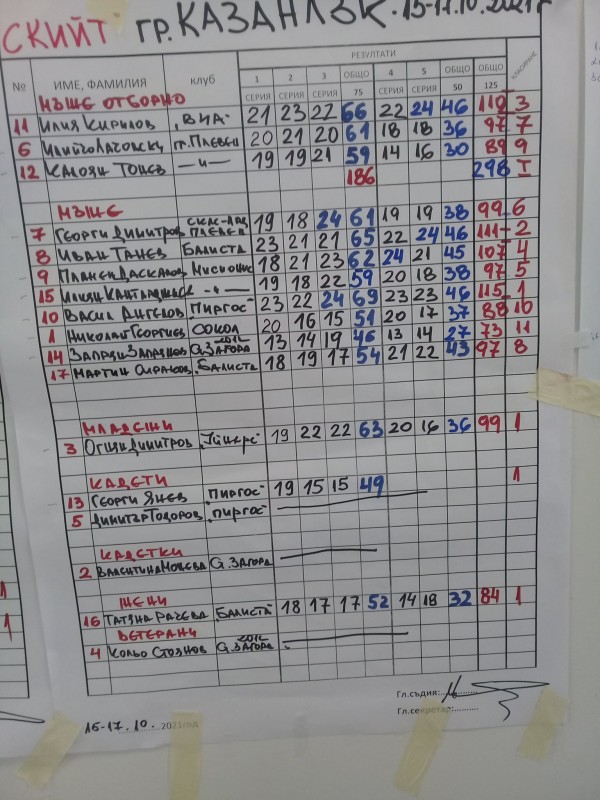 СКИЙТ гр. КАЗАНЛЪК. 15-17.10.2021г
№ ИМЕ, ФАМИЛИЯ клуб РЕЗУЛТАТИ
1 2 3 ОБЩО 4 5 ОБЩО ОБЩО
СЕРИЯ СЕРИЯ СЕРИЯ 75 СЕРИЯ СЕРИЯ 50 125
МЪЖЕ ОТБОРНО
11 Илия Кирилов 21 23 22 66 22 24 46 110 3
6 гр. Плевен 20 21 20 61 18 18 36 97 7
12 Калоян Тонев —"— 19 19 21 59 14 16 30 89 9
186 298 I
МЪЖЕ
7 Георги Димитров 19 18 24 61 19 19 38 99 6
8 Иван Танев Балиста 23 21 21 65 22 24 46 111 2
9 Пламен Даскалов 18 21 23 62 24 21 45 107 4
15 Илиян 19 18 22 59 20 18 38 97 5
10 Васил Ангелов Пиргос 23 22 24 69 23 23 46 115 1
1 Николай Георгиев Сокол 20 16 15 51 20 17 37 88 10
14 Запрян Запрянов Ст.Загора 2012 13 14 19 46 13 14 27 73 11
17 Мартин Балиста 18 19 17 54 21 22 43 97 8
МЛАДЕЖИ
3 Огнян Димитров 19 22 22 63 20 16 36 99 1
КАДЕТИ 1
13 Георги Янев „Пиргос" 19 15 15 49
5 Димитър Тодоров „Пиргос"
КАДЕТКИ
2 Валентина Ст.Загора
ЖЕНИ
16 Татяна Рачева „Балиста" 18 17 17 52 14 18 32 84 1
ВЕТЕРАНИ
4 Кольо Стоянов Ст.Загора 2012
Гл.съдия:..........
Гл.секретар:..........
16-17.10. 2021год